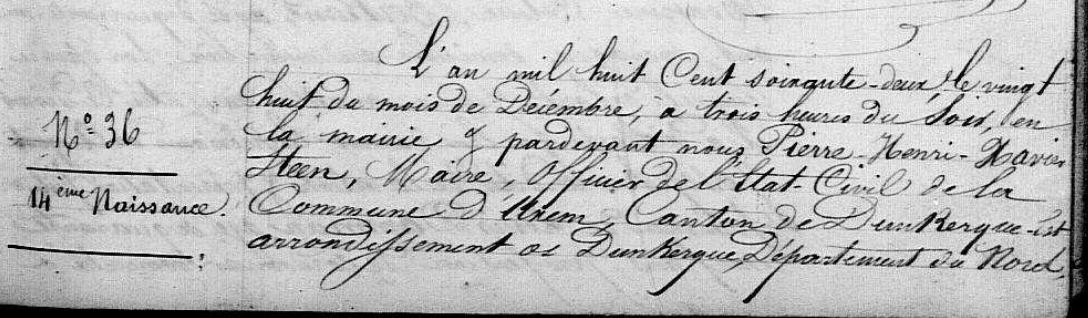 N° 36
14ème Naissance.
L'an mil huit Cent soixante-deux, le vingt
huit du mois de Décembre, à trois heures du Soir, en
la mairie & pardevant nous Pierre-Henri-Xavier
Steen, Maire, Officier de l'Etat-Civil de la
Commune d'Uxem, Canton de Dunkerque-Est
arrondissement de Dunkerque, Département du Nord,